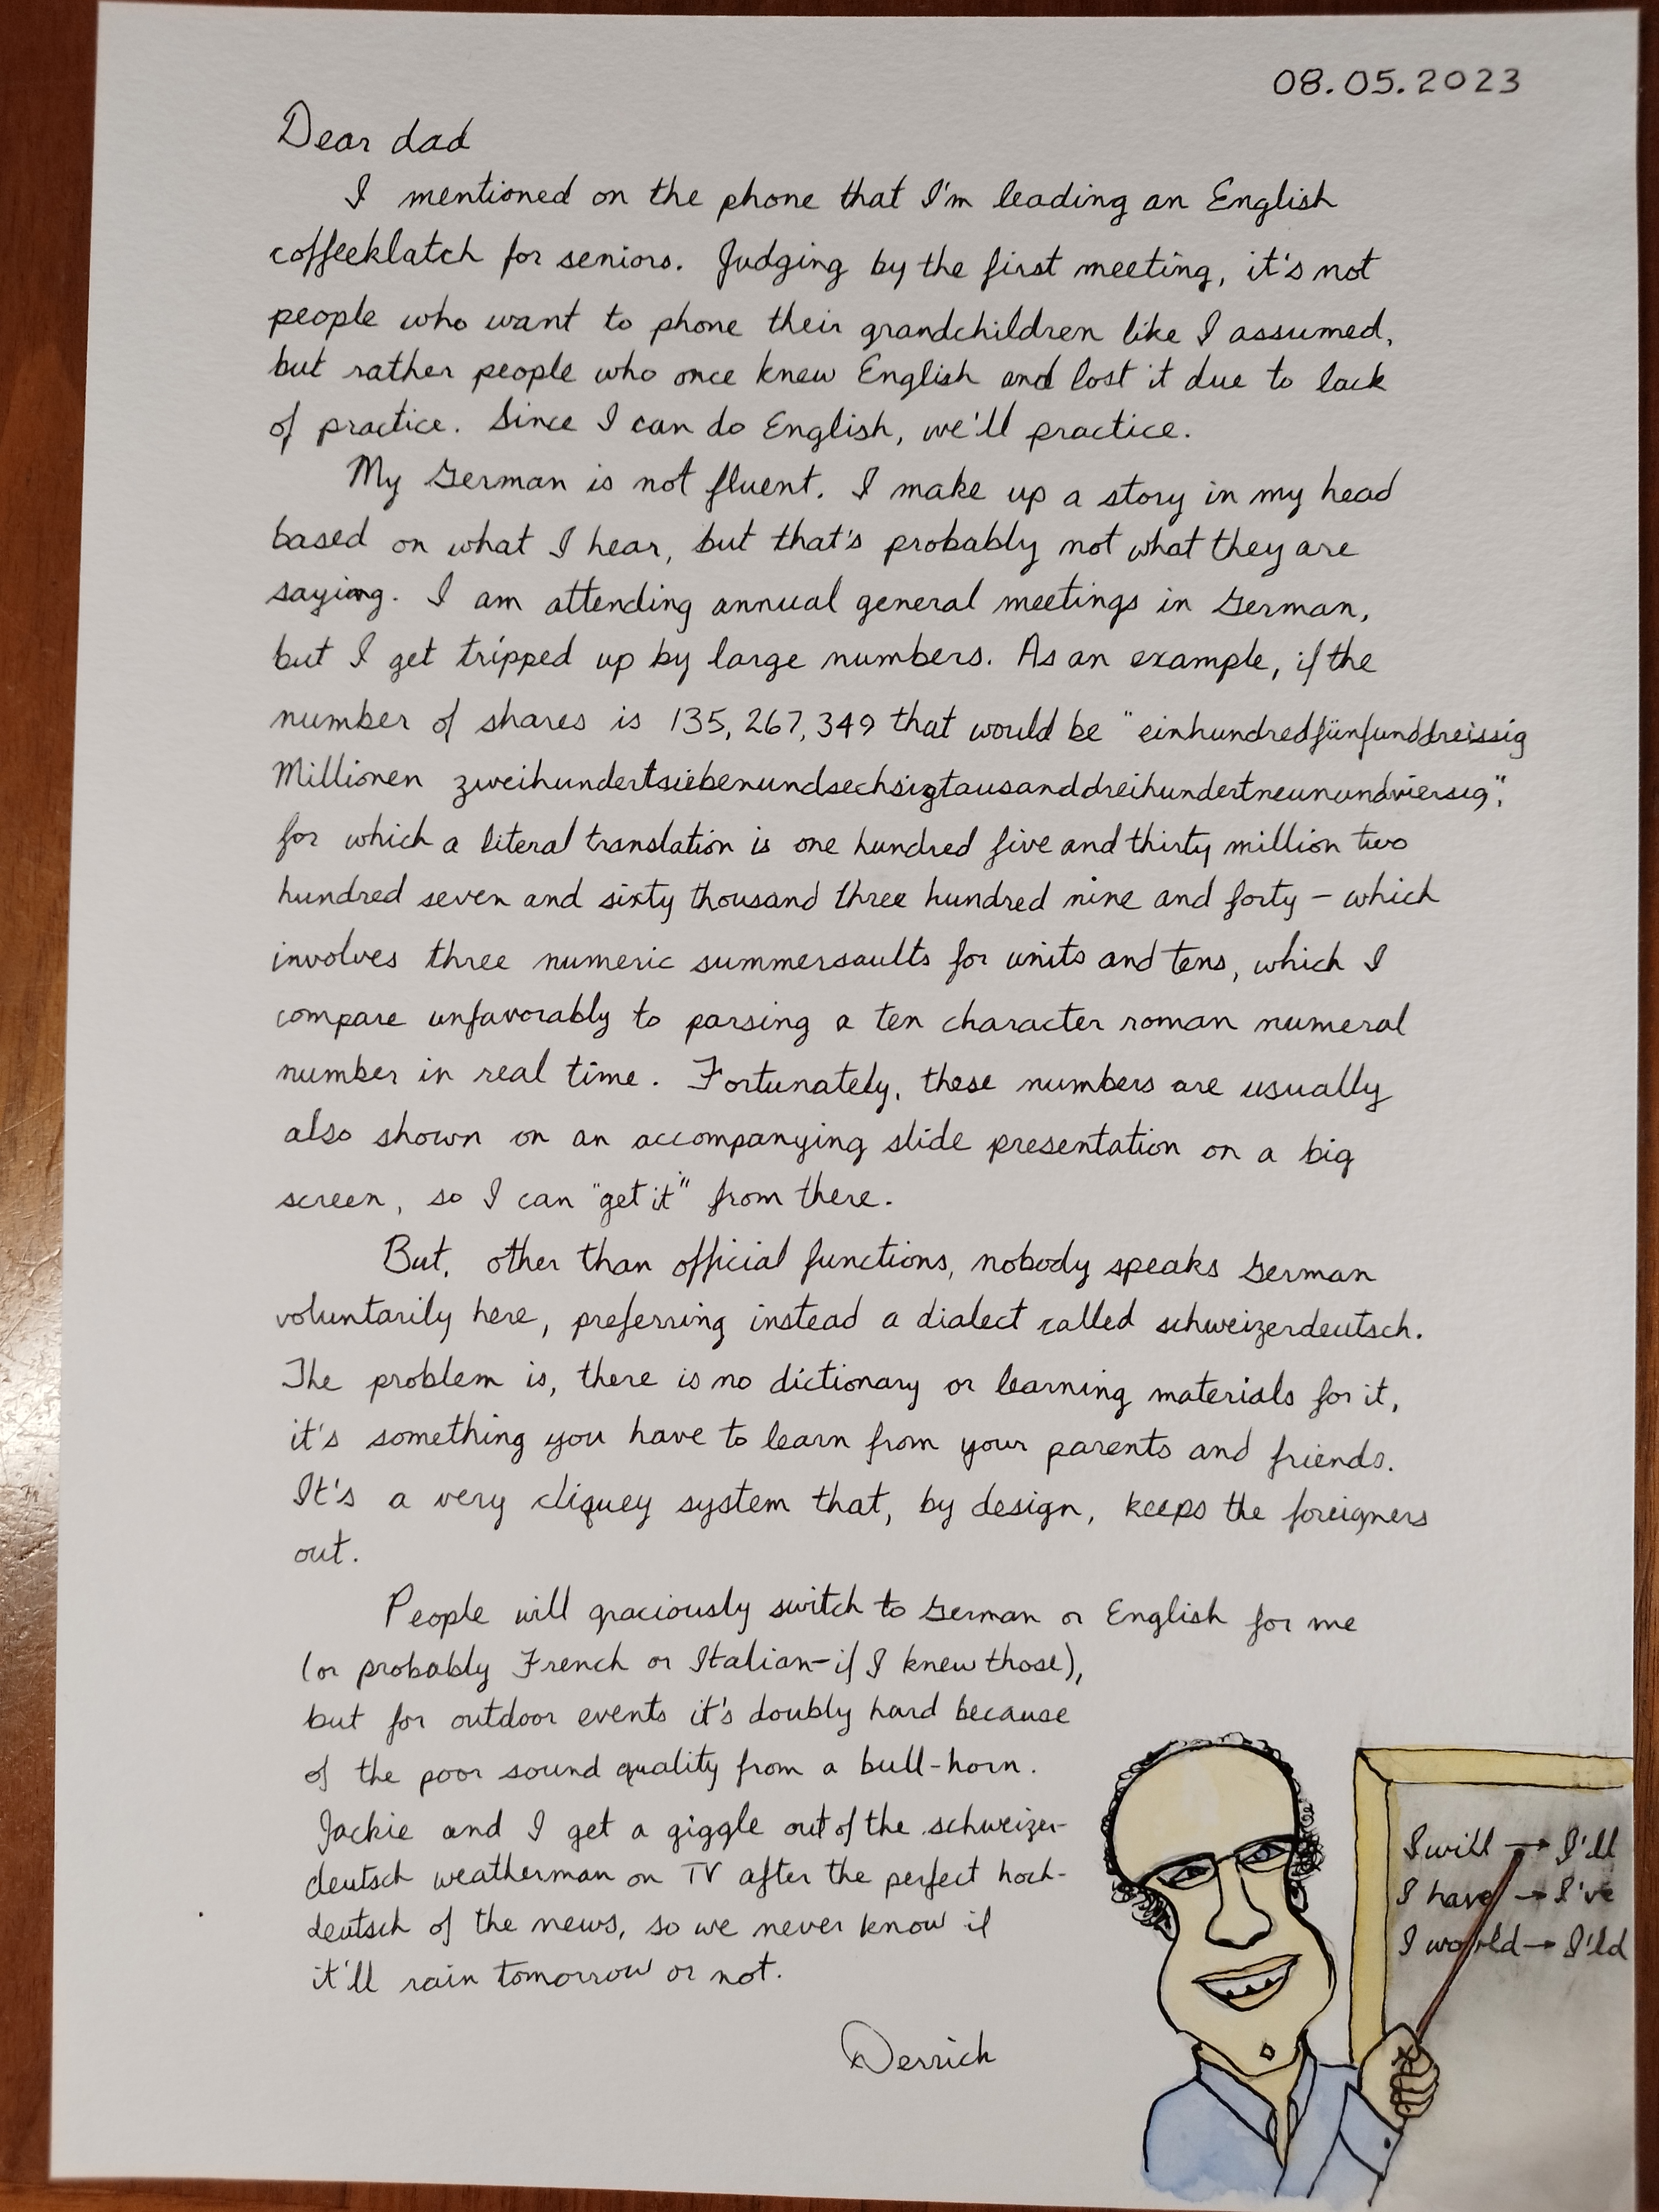 08.05.2023
Dear dad
I mentioned on the phone that I'm leading an English
coffeeklatch for seniors. Judging by the first meeting, it's not
people who want to phone their grandchildren like I assumed,
but rather people who once knew English and lost it due to lack
of practice. Since I can do English, we'll practice.
My German is not fluent. I make up a story in my head
based on what I hear, but that's probably not what they are
saying. I am attending annual general meetings in German,
but I get tripped up by large numbers. As an example, if the
number of shares is 135,267,349 that would be "einhundredfünfunddreissig
Millionen zweihundertsiebenundsechsigtausanddreihundertneunundviersig",
for which a literal translation is one hundred five and thirty million two
hundred seven and sixty thousand three hundred nine and forty – which
involves three numeric summersaults for units and tens, which I
compare unfavorably to parsing a ten character roman numeral
number in real time. Fortunately, these numbers are usually
also shown on an accompanying slide presentation on a big
screen, so I can "get it" from there.
But, other than official functions, nobody speaks German
voluntarily here, preferring instead a dialect called schweizerdeutsch.
The problem is, there is no dictionary or learning materials for it,
it's something you have to learn from your parents and friends.
It's a very cliquey system that, by design, keeps the foreigners
out.
People will graciously switch to German or English for me
(or probably French or Italian–if I knew those),
but for outdoor events it's doubly hard because
of the poor sound quality from a bull-horn.
Jackie and I get a giggle out of the schweizer-
deutsch weatherman on TV after the perfect hoch-
deutsch of the news, so we never know if
it'll rain tomorrow or not.
Derrick
I will → I'll
I have → I've
I would → I'ld